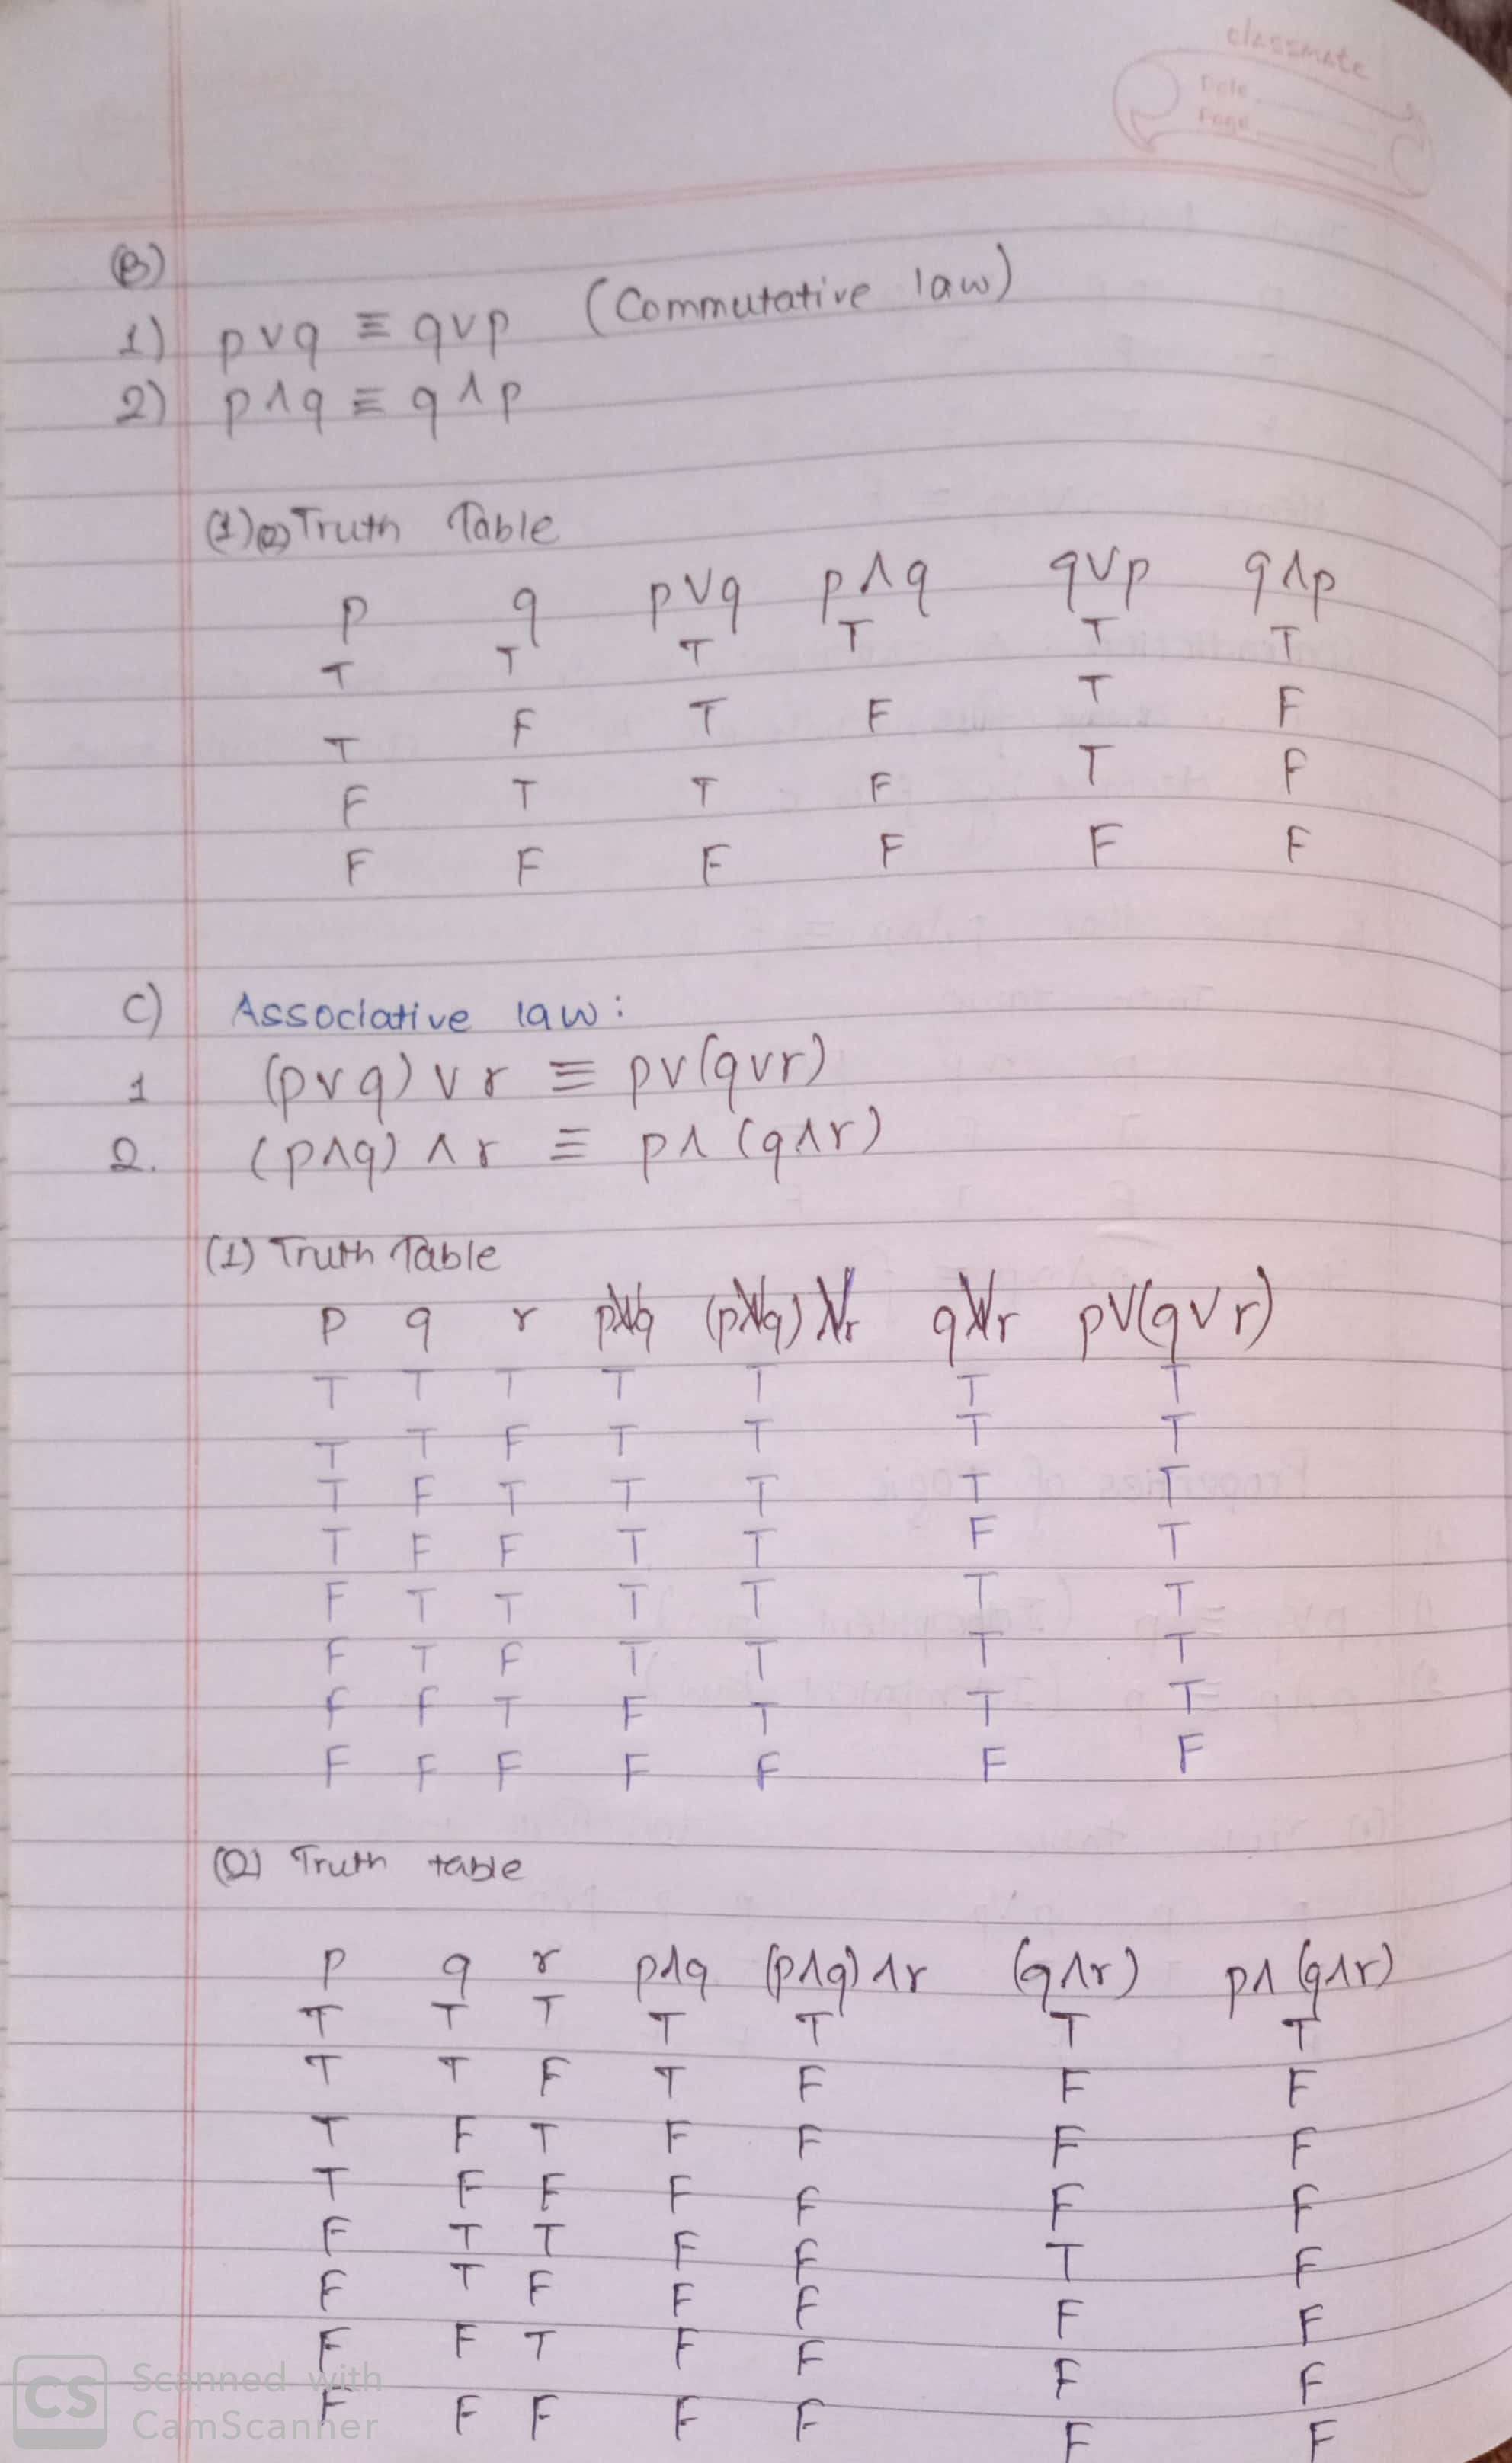 classmate
Date
Page
(B)
1) p∨q ≡ q∨p (Commutative law)
2) p∧q ≡ q∧p
(1)(2) Truth Table
p q p∨q p∧q q∨p q∧p
T T T T T T
T F T F T F
F T T F T F
F F F F F F
C) Associative law:
1 (p∨q)∨r ≡ p∨(q∨r)
2. (p∧q)∧r ≡ p∧(q∧r)
(1) Truth Table
p q r p∨q (p∨q)∨r q∨r p∨(q∨r)
T T T T T T T
T T F T T T T
T F T T T T T
T F F T T F T
F T T T T T T
F T F T T T T
F F T F T T T
F F F F F F F
(2) Truth table
p q r p∧q (p∧q)∧r (q∧r) p∧(q∧r)
T T T T T T T
T T F T F F F
T F T F F F F
T F F F F F F
F T T F F T F
F T F F F F F
F F T F F F F
F F F F F F F
CS Scanned with
CamScanner